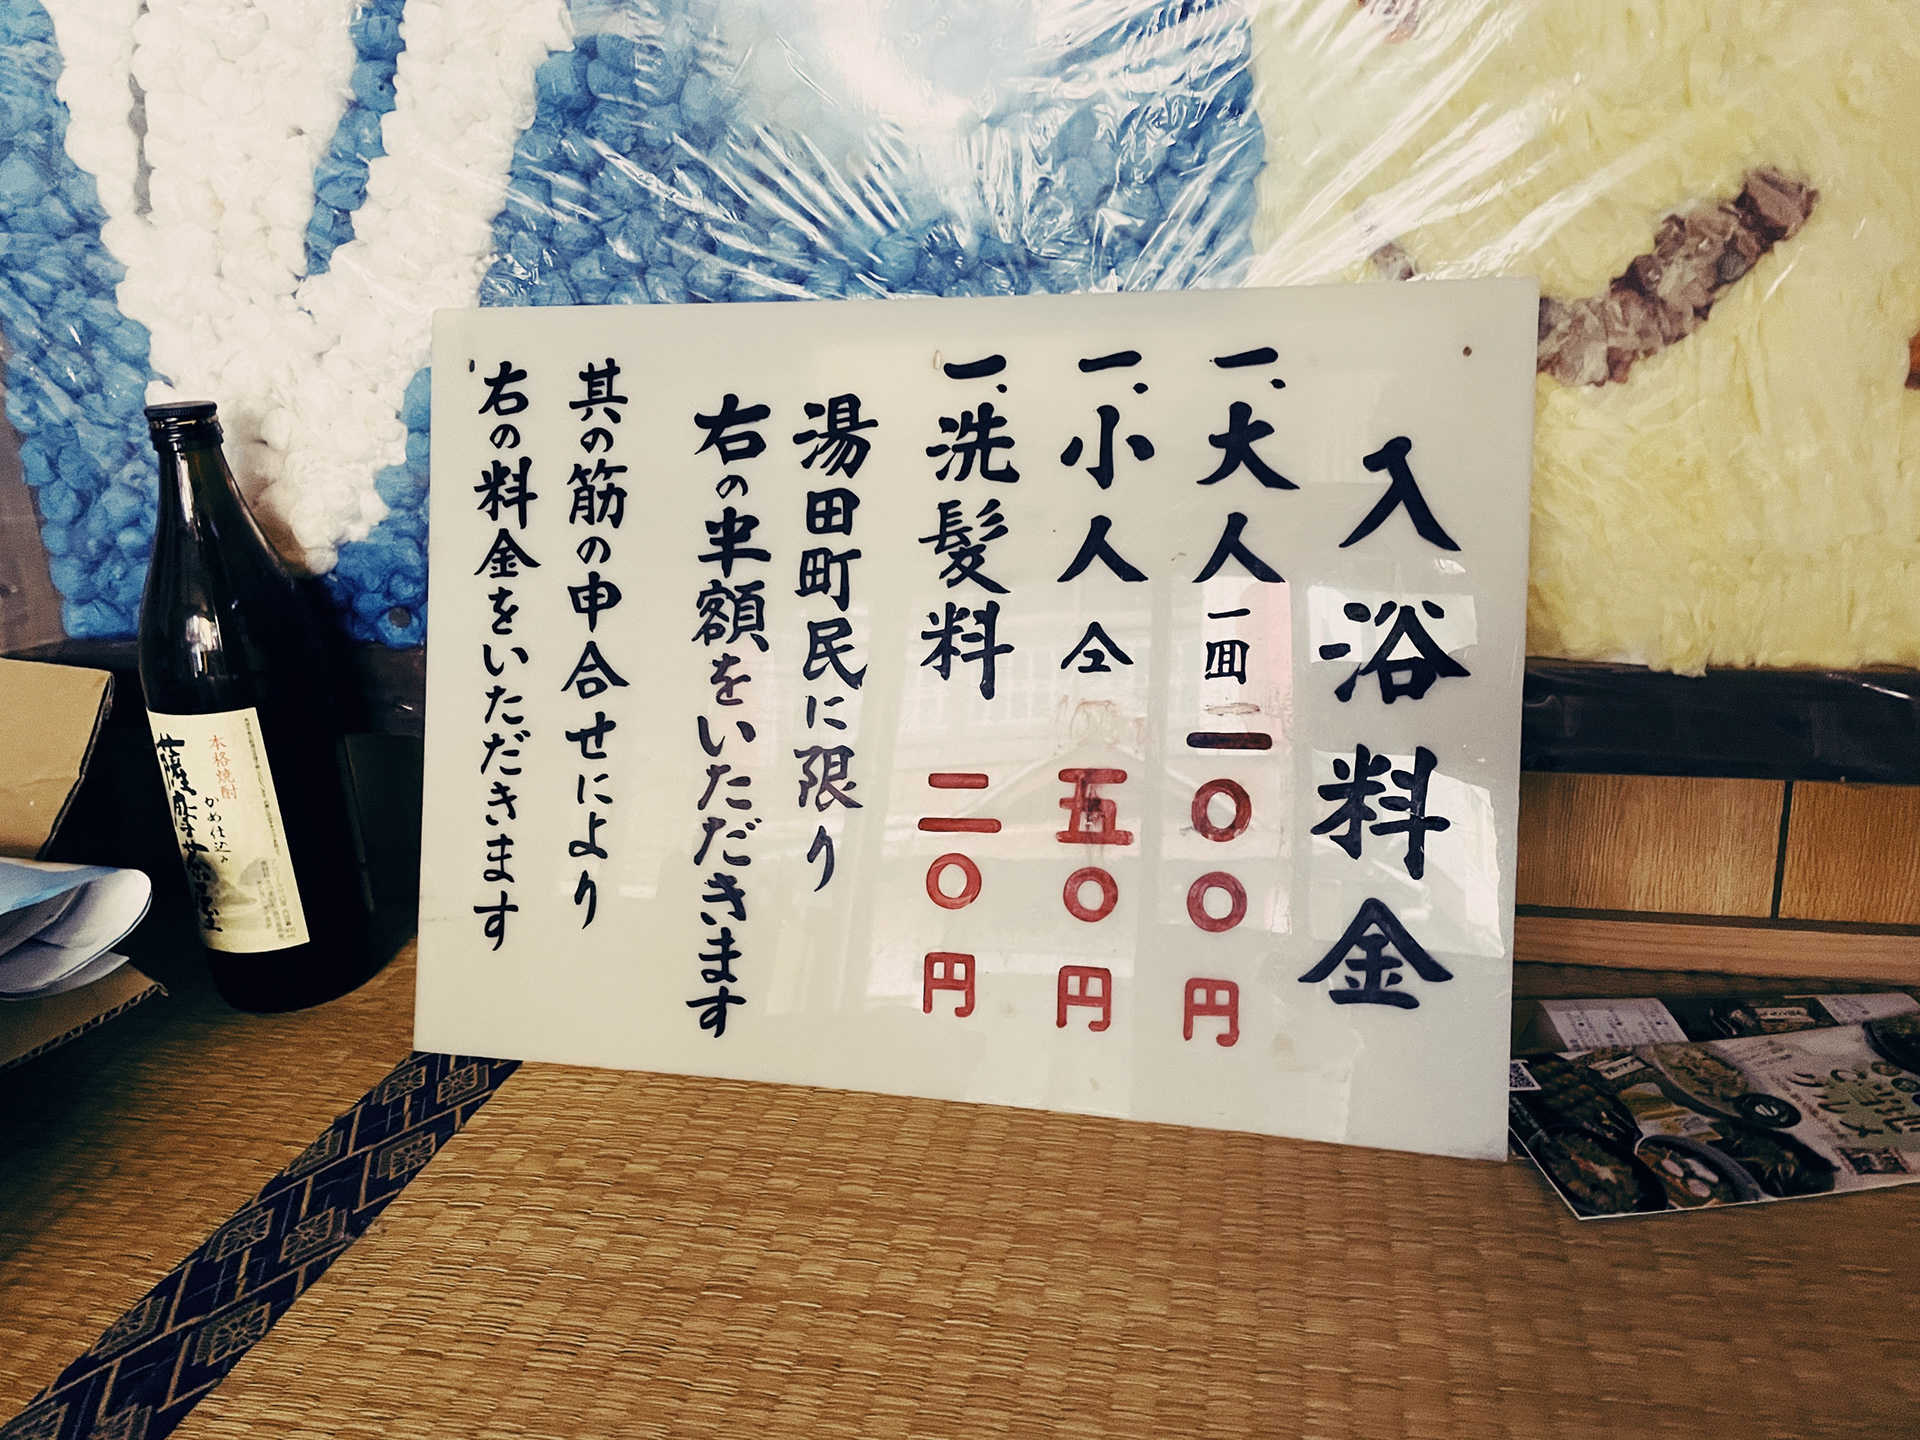 入浴料金
一、大人 一回 一〇〇円
一、小人 仝 五〇円
一、洗髪料 二〇円
湯田町民に限り
右の半額をいただきます
其の筋の申合せにより
右の料金をいただきます
本格焼酎
かめ仕込み
薩摩茶屋
ご当地
グルメ